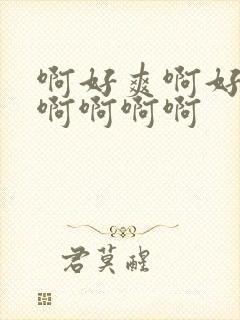 啊好爽啊好
啊啊啊啊
君莫醒